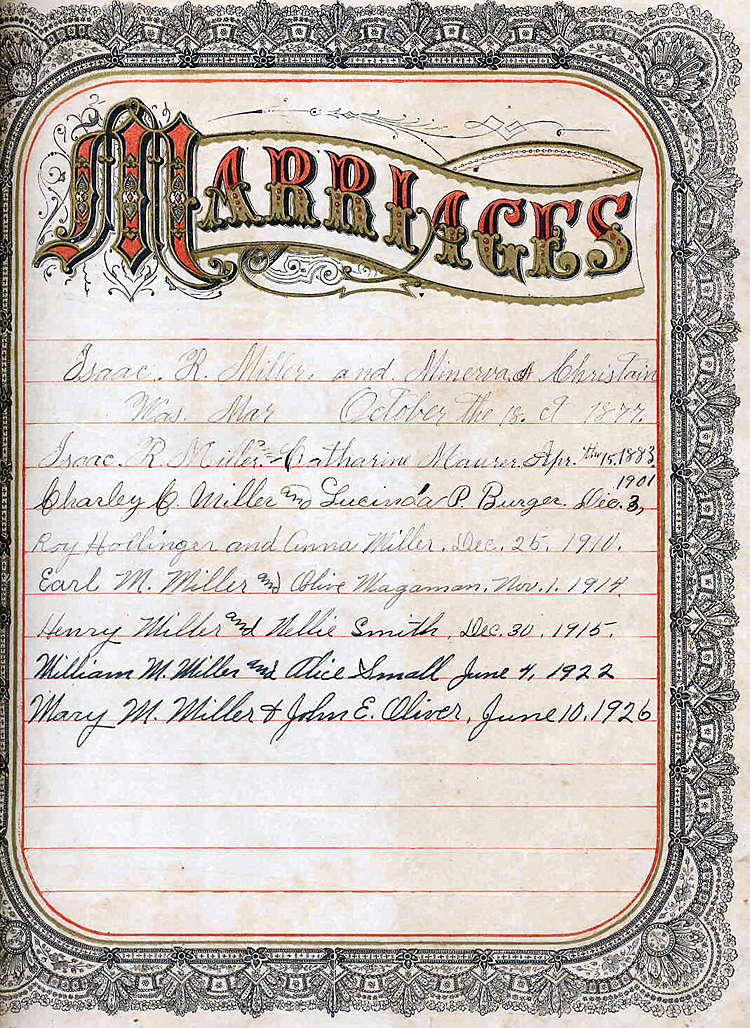 MARRIAGES
Isaac. R. Miller. and Minerva A Christain
Was. Mar October the 18. ct 1877.
Isaac. R. Miller. Catharine Maurer. Apr. the 15. 1883
1901
Charley C. Miller and Lucinda P. Burger. Dec. 3,
Roy Hollinger and Anna Miller. Dec. 25, 1910.
Earl M. Miller and Olive Wagaman. Nov. 1. 1914
Henry Miller and Nellie Smith, Dec. 30, 1915.
William M. Miller and Alice Small June 4, 1922
Mary M. Miller & John E. Oliver, June 10, 1926